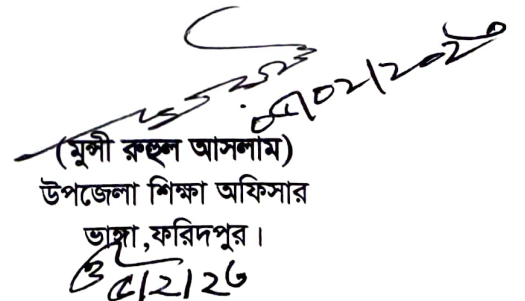 ০৫/০২/২০২৬
(মুন্সী রুহুল আসলাম)
উপজেলা শিক্ষা অফিসার
ভাঙ্গা,ফরিদপুর।
৫/২/২৬